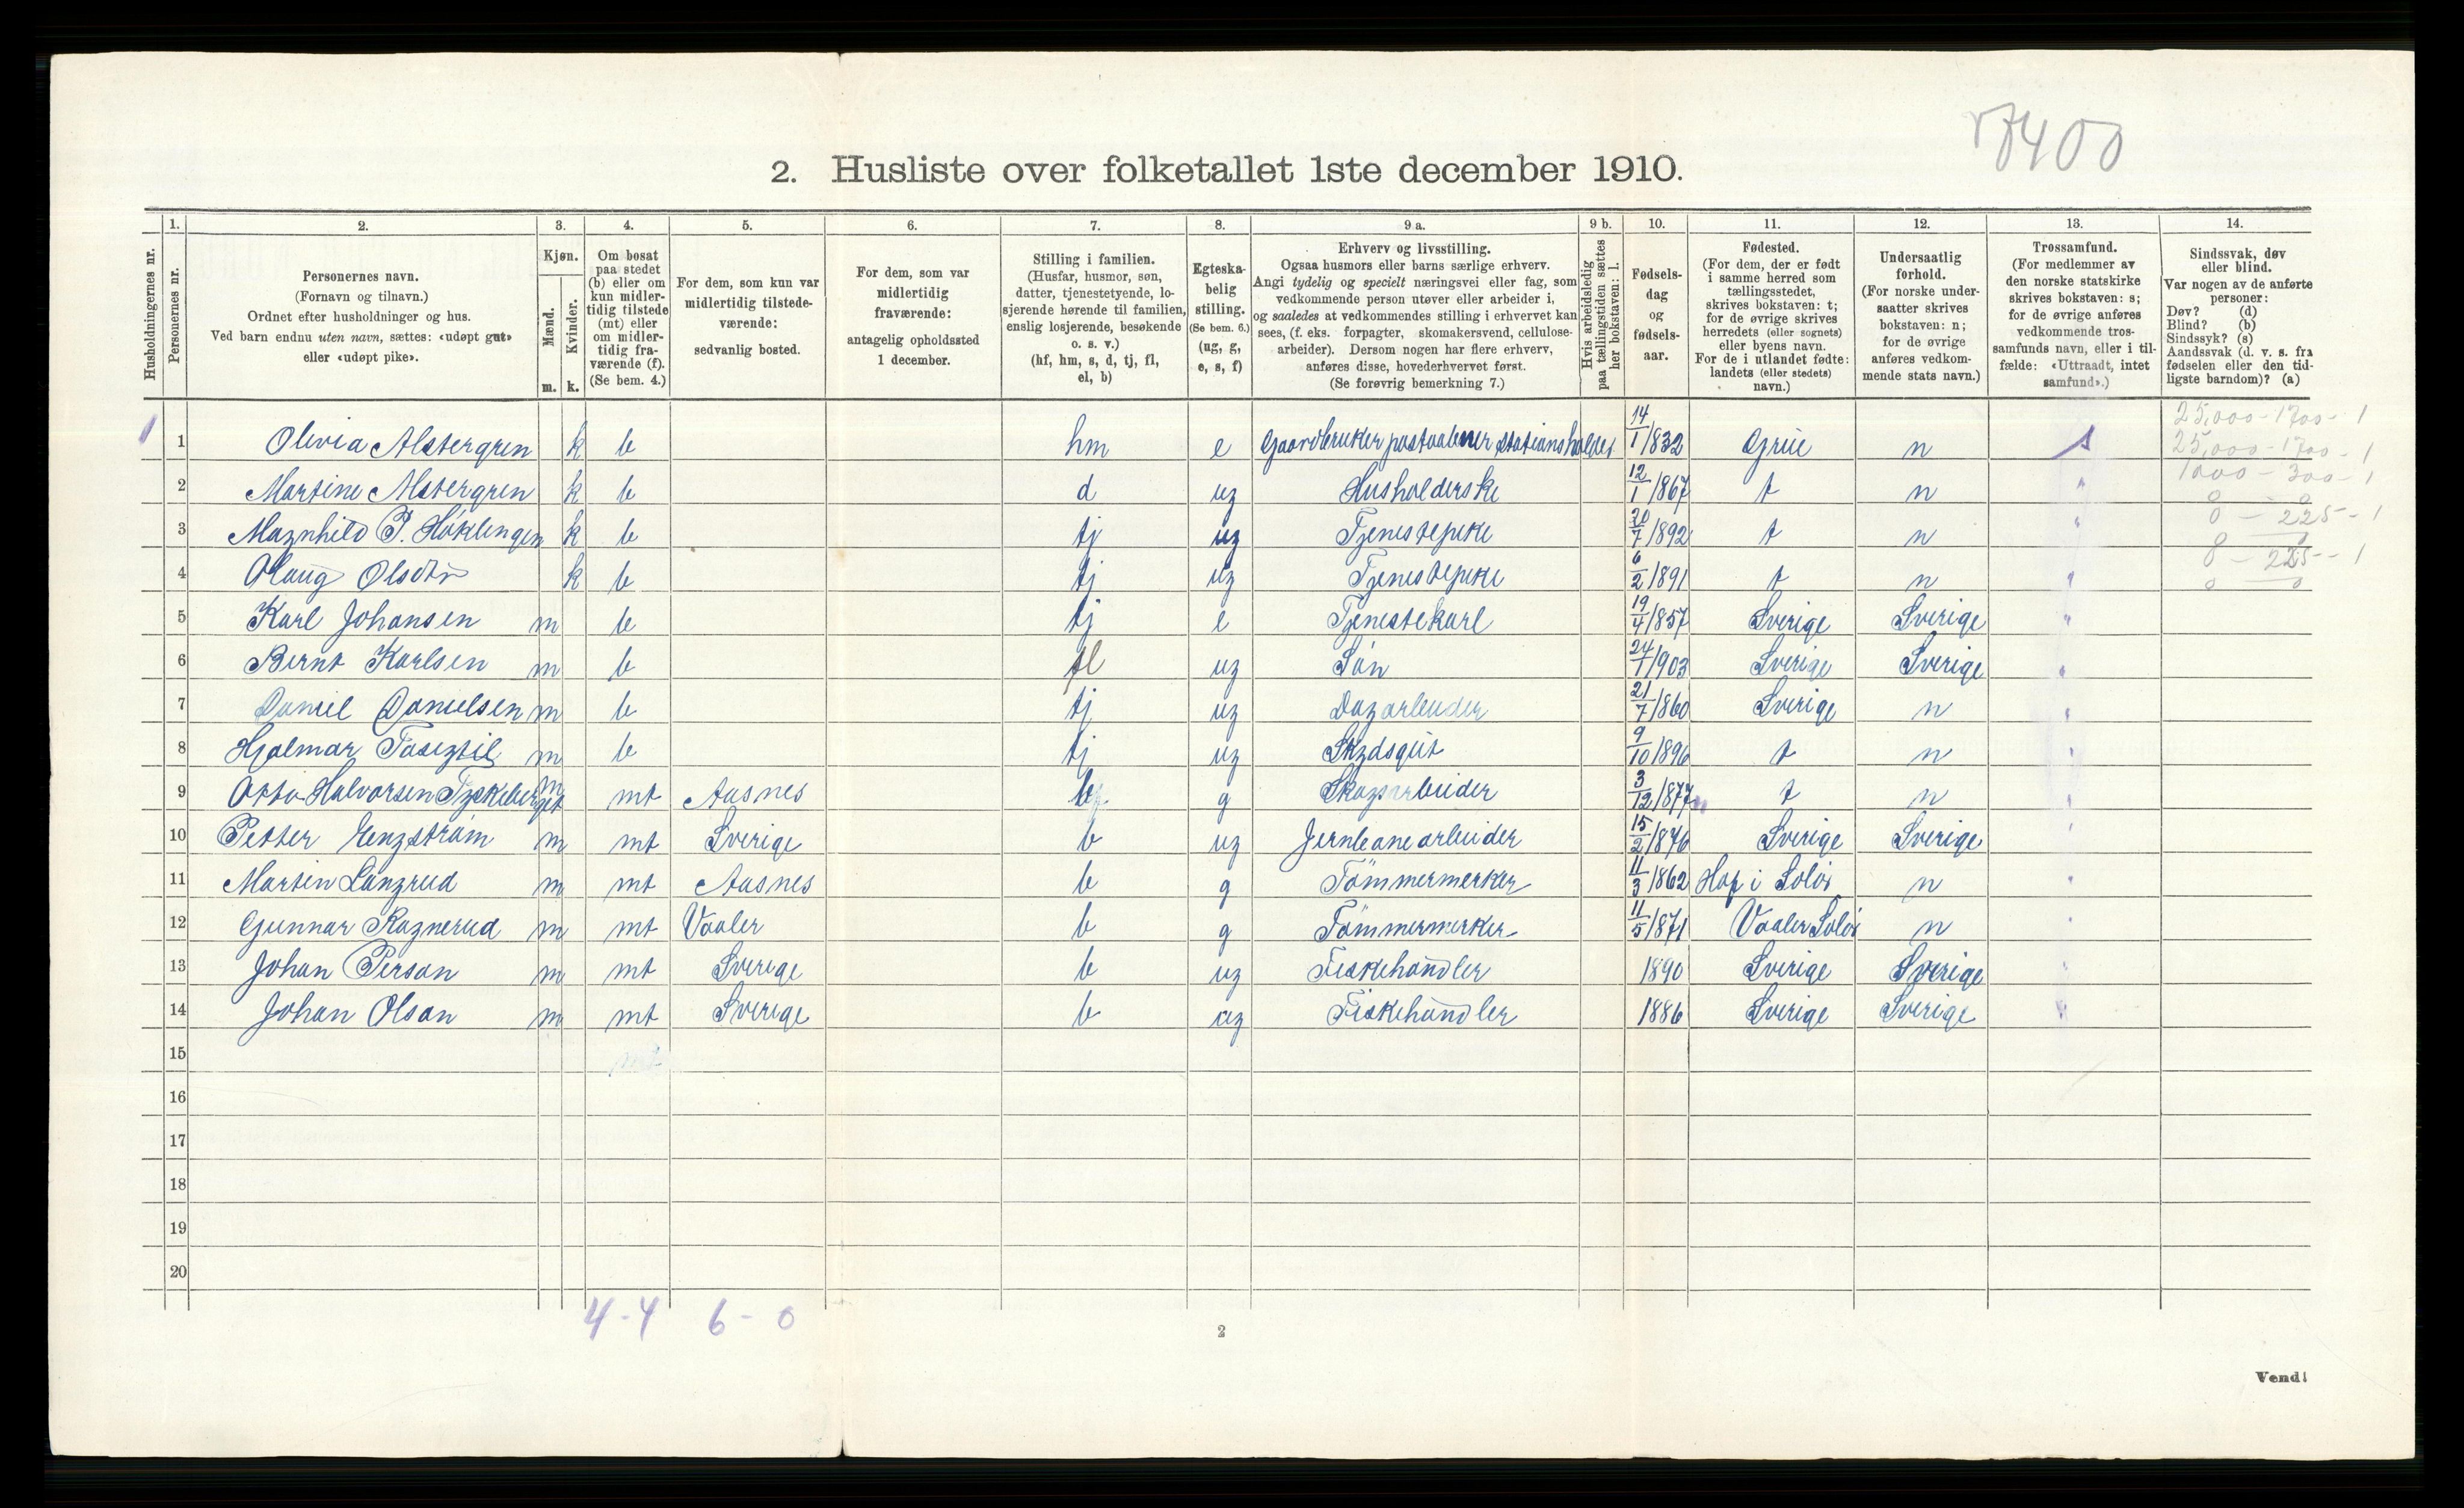 8400
2. Husliste over folketallet 1ste december 1910.
1. 2. 3. 4. 5. 6. 7. 8. 9 a. 9 b. 10. 11. 12. 13. 14.
Husholdningernes nr.
Personernes nr.
Personernes navn.
(Fornavn og tilnavn.)
Ordnet efter husholdninger og hus.
Ved barn endnu uten navn, sættes: «udøpt gut»
eller «udøpt pike».
Kjøn.
Mænd.
Kvinder.
m. k.
Om bosat
paa stedet
(b) eller om
kun midler-
tidig tilstede
(mt) eller
om midler-
tidig fra-
værende (f).
(Se bem. 4.)
For dem, som kun var
midlertidig tilstede-
værende:
sedvanlig bosted.
For dem, som var
midlertidig
fraværende:
antagelig opholdssted
1 december.
Stilling i familien.
(Husfar, husmor, søn,
datter, tjenestetyende, lo-
sjerende hørende til familien,
enslig losjerende, besøkende
o. s. v.)
(hf, hm, s, d, tj, fl,
el, b)
Egteska-
belig
stilling.
(Se bem. 6.)
(ug, g,
e, s, f)
Erhverv og livsstilling.
Ogsaa husmors eller barns særlige erhverv.
Angi tydelig og specielt næringsvei eller fag, som
vedkommende person utøver eller arbeider i,
og saaledes at vedkommendes stilling i erhvervet kan
sees, (f. eks. forpagter, skomakersvend, cellulose-
arbeider). Dersom nogen har flere erhverv,
anføres disse, hovederhvervet først.
(Se forøvrig bemerkning 7.)
Hvis arbeidsledig
paa tællingstiden sættes
her bokstaven: l.
Fødsels-
dag
og
fødsels-
aar.
Fødested.
(For dem, der er født
i samme herred som
tællingsstedet,
skrives bokstaven: t;
for de øvrige skrives
herredets (eller sognets)
eller byens navn.
For de i utlandet fødte:
landets (eller stedets)
navn.)
Undersaatlig
forhold.
(For norske under-
saatter skrives
bokstaven: n;
for de øvrige
anføres vedkom-
mende stats navn.)
Trossamfund.
(For medlemmer av
den norske statskirke
skrives bokstaven: s;
for de øvrige anføres
vedkommende tros-
samfunds navn, eller i til-
fælde: «Uttraadt, intet
samfund».)
Sindssvak, døv
eller blind.
Var nogen av de anførte
personer:
Døv? (d)
Blind? (b)
Sindssyk? (s)
Aandssvak (d. v. s. fra
fødselen eller den tid-
ligste barndom)? (a)
25,000 - 1700 - 1
25,000 - 1700 - 1
1000 - 300 - 1
0 - 0
0 - 225 - 1
0 - 0
0 - 225 - 1
0 - 0
1 1 Olivia Alstergren k b hm e Gaardbruker postaabner stationsholder 14/1/832 Grue n s
2 Martine Alstergren k b d ug Husholderske 12/1/1867 t n "
3 Magnhild P. Höklingen k b tj ug Tjenestepike 20/7/1892 t n "
4 Olaug Olsdtr k b tj ug Tjenestepike 6/2/1891 t n "
5 Karl Johansen m b tj e Tjenestekarl 19/4/857 Sverige Sverige "
6 Bernt Karlsen m b fl ug Sön 24/1/903 Sverige Sverige "
7 Daniel Danielsen m b tj ug Dagarbeider 21/7/1860 Sverige n "
8 Hjalmar m b tj ug Skydsgut 9/10/1896 t n "
9 Otto Halvorsen Tyskeberget m mt Aasnes b g Skogsarbeider 3/12/1877 t n "
10 Petter Engström m mt Sverige b ug Jernbanearbeider 15/2/1876 Sverige Sverige "
11 Martin Langrud m mt Aasnes b g Tömmermerker 11/3/1862 Hof i Solör n "
12 Gunnar Ragnerud m mt Vaaler b g Tömmermerker 11/5/1871 Vaaler Solör n "
13 Johan Person m mt Sverige b ug Fiskehandler 1890 Sverige Sverige "
14 Johan Olson m mt Sverige b ug Fiskehandler 1886 Sverige Sverige "
15
16
17
18
19
20
4 - 4 6 - 0
2
Vend!